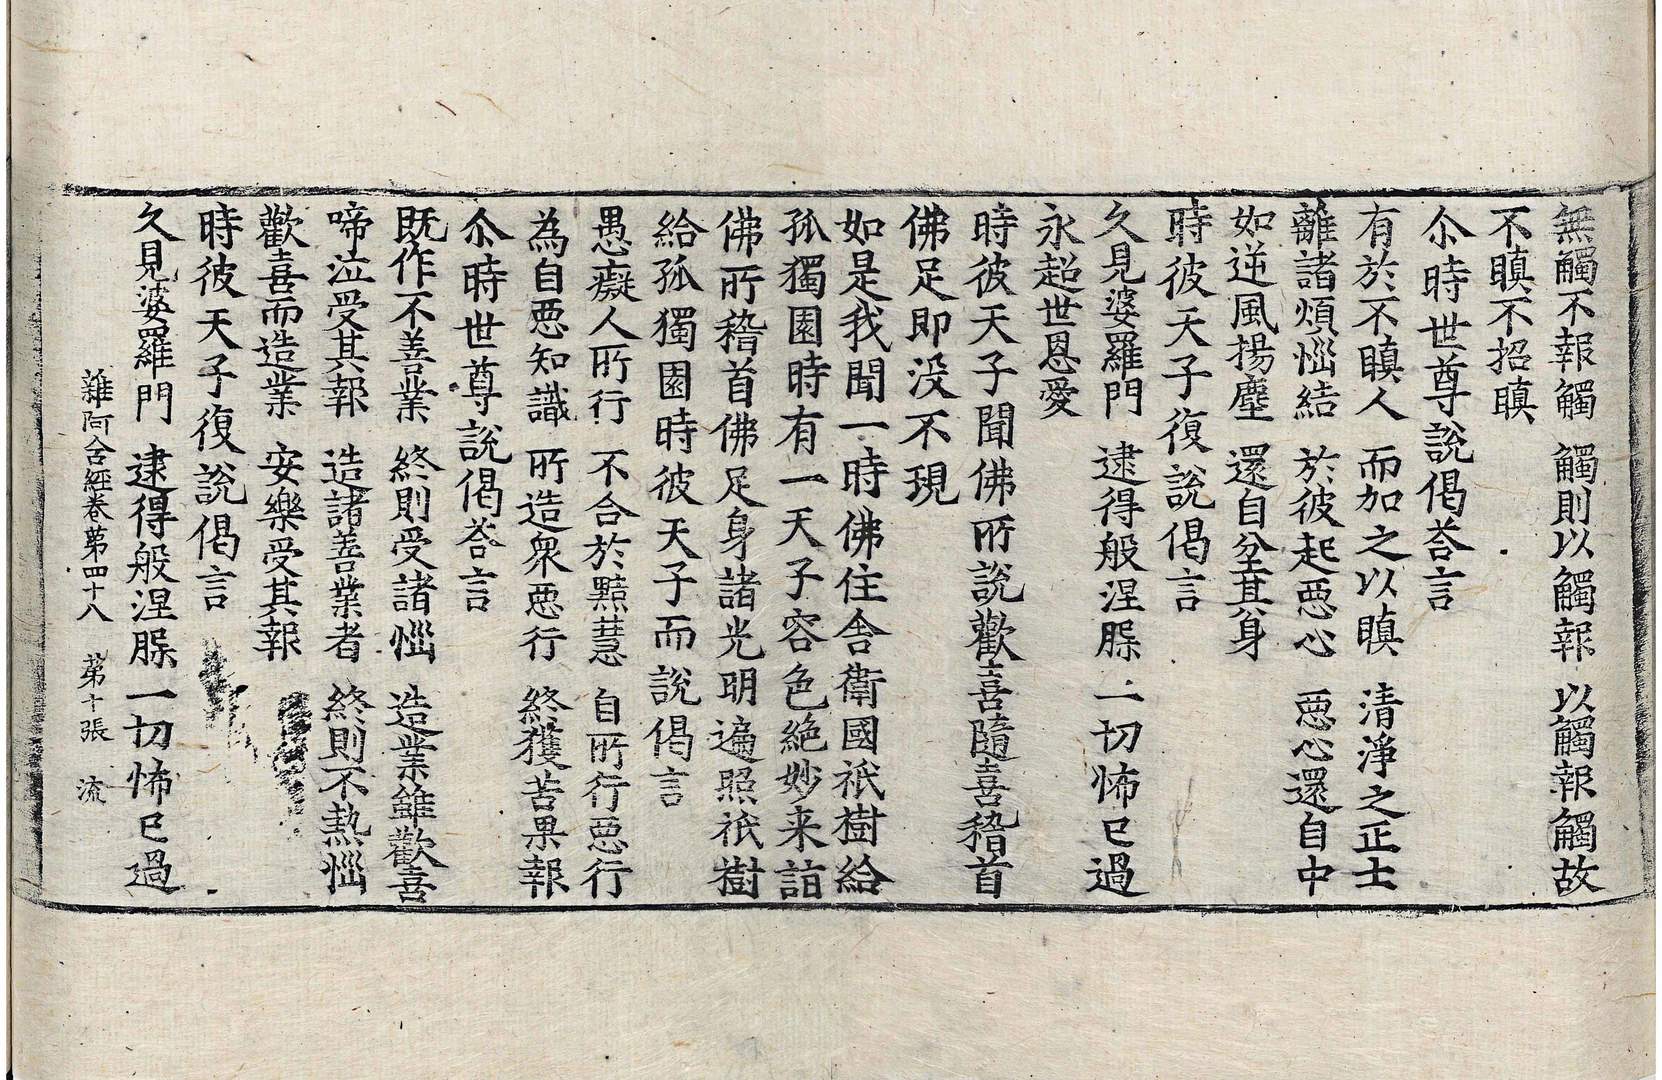 無觸不報觸　觸則以觸報　以觸報觸故
不瞋不招瞋
尒時世尊說偈荅言
有於不瞋人　而加之以瞋　清淨之正士
離諸煩惱結　於彼起惡心　惡心還自中
如逆風揚塵　還自坌其身
時彼天子復說偈言
久見婆羅門　逮得般涅槃　一切怖已過
永超世恩愛
時彼天子聞佛所說歡喜隨喜稽首
佛足即没不現
如是我聞一時佛住舍衛國祇樹給
孤獨園時有一天子容色絶妙来詣
佛所稽首佛足身諸光明遍照祇樹
給孤獨園時彼天子而說偈言
愚癡人所行　不合於黠慧　自所行惡行
為自惡知識　所造衆惡行　終獲苦果報
尒時世尊說偈荅言
既作不善業　終則受諸惱　造業雖歡喜
啼泣受其報　造諸善業者　終則不熱惱
歡喜而造業　安樂受其報
時彼天子復說偈言
久見婆羅門　逮得般涅槃　一切怖已過
雜阿含經卷第四十八　第十張　流